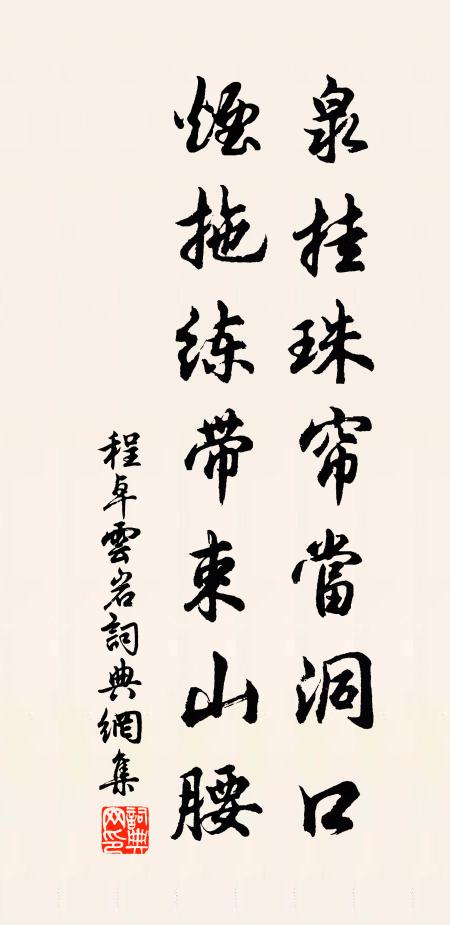 泉挂珠帘當洞口
煙拖练带束山腰
程卓雲岩詞典網集
詞典网印